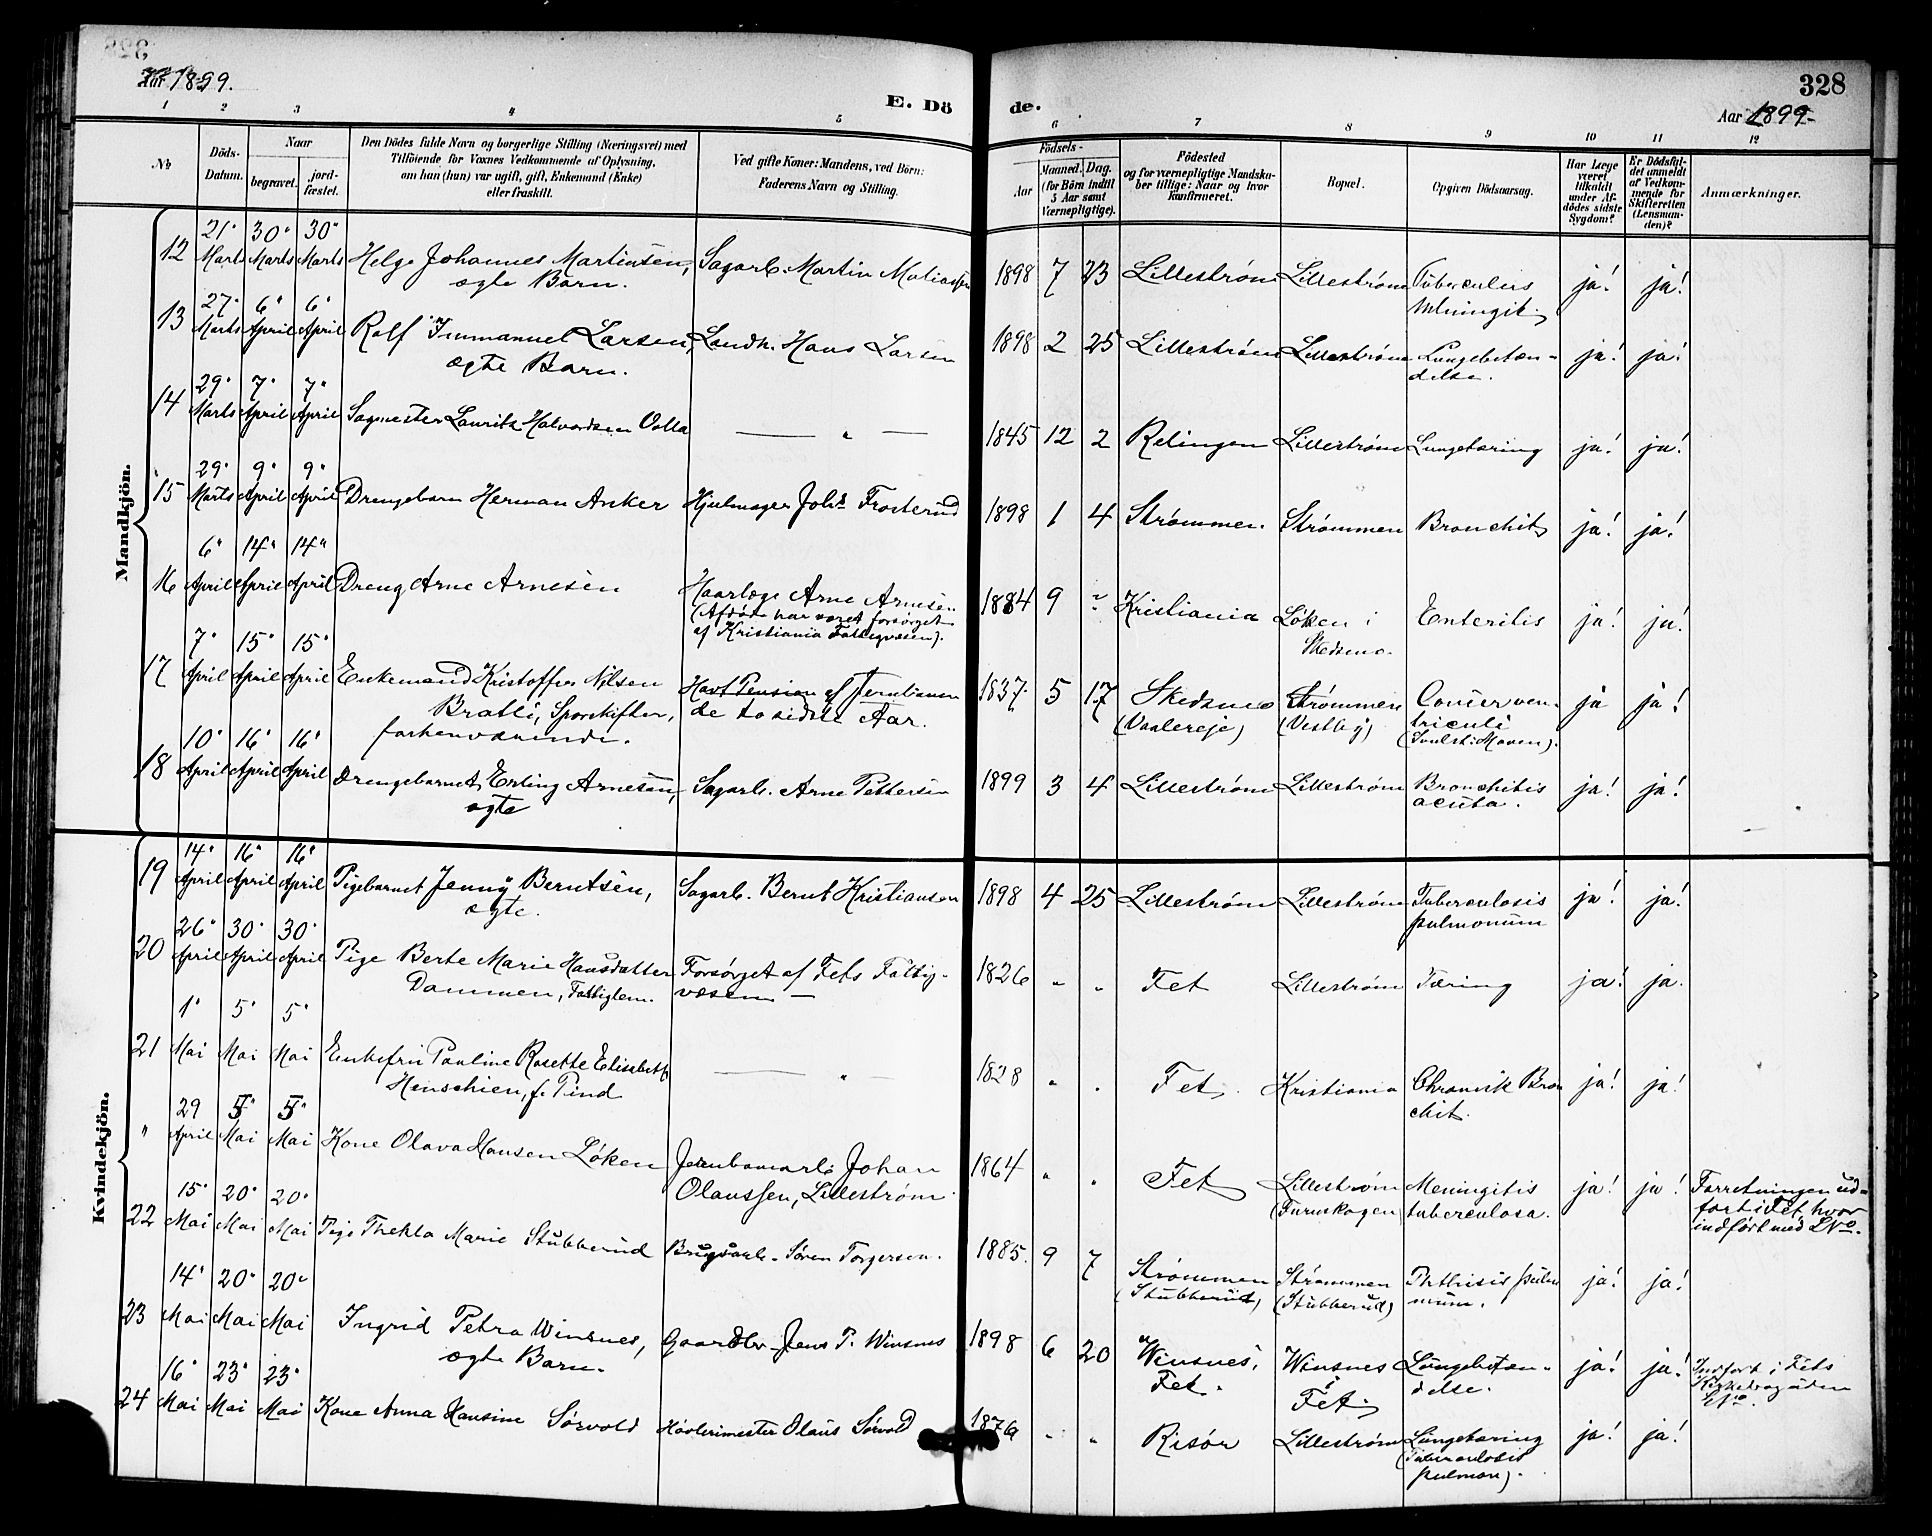 Aar 1899.
E. Dö
de.
328
Aar 1899-
1 2 3 4 5 6 7 8 9 10 11 12
No
Döds-
Datum.
Naar
begravet.
jord-
fæstet.
Den Dödes fulde Navn og borgerlige Stilling (Næringsvei) med
Tilföiende for Voxnes Vedkommende af Oplysning,
om han (hun) var ugift, gift, Enkemand (Enke)
eller fraskilt.
Ved gifte Koner: Mandens, ved Börn:
Faderens Navn og Stilling.
Födsels-
Aar
Maaned. Dag.
(for Börn indtil
5 Aar samt
Værnepligtige).
Födested
og for værnepligtige Mandska-
ber tillige: Naar og hvor
konfirmeret.
Bopæl.
Opgiven Dödsaarsag.
Har Læge
været
tilkaldt
under Af-
dödes sidste
Sygdom?
Er Dödsfal-
det anmeldt
af Vedkom-
mende for
Skifteretten
(Lensman-
den)?
Anmærkninger.
Mandkjön.
12 21' Marts 30' Marts 30' Marts Helge Johannes Martinsen, Sagarb. Martin 1898 7 23 Lilleström Lilleström Tuberculeis ja! ja!
ægte Barn. Meningit.
13 27' Marts 6' April 6' April Rolf Immanuel Larsen, Landh. Hans Larsen 1898 2 25 Lilleström Lilleström Lungebetæn- ja! ja!
ægte Barn. delse.
14 29' Marts 7' April 7' April Sagmester Lauritz Halvordsen Volla — " — 1845 12 2 Relingen Lilleström Lungetæring ja! ja!
15 29' Marts 9' April 9' April Drengebarn Herman Anker Hjulmager Johs Frosterud 1898 1 4 Strømmen. Strømmen Bronchit ja! ja!
16 6' April 14' April 14' April Dreng Arne Arnesen Arne Arnesen 1884 9 Kristiania Løken i Enteritis ja! ja!
(Afdøde har været forsørget Skedsmo.
af Kristiania Fattigvæsen).
17 7' April 15' April 15' April Enkemand Kristoffer Nilsen Havt Pension af Jernbanen 1837 5 17 Skedsmo Strømmen Cancer ven- ja ja!
Bratli, Sporskifter, de to sidste Aar. (Vestby) triculi
forhenværende. (Svulst i Maven).
18 10' April 16' April 16' April Drengebarnet Erling Arnesen, Sagarb. Arne Pettersen 1899 3 4 Lilleström Lilleström Bronchitis ja! ja!
ægte acuta.
Kvindekjön.
19 14' April 16' April 16' April Pigebarnet Jenny Berntsen, Sagarb. Bernt Kristiansen 1898 4 25 Lilleström Lilleström Tuberculosis ja! ja!
ægte. pulmonum
20 26' April 30' April 30' April Pige Berte Marie Hansdatter Forsørget af Fets Fattig- 1826 " " Fet Lilleström Tæring ja! ja.
Dammen, Fattiglem. væsen —
21 1' Mai 5' Mai 5' Mai Enkefru Pauline Rosette Elisabeth — " — 1828 " " Fet. Kristiania Chronisk Bron ja! ja!
Henschien, f. Pind chit.
" 29 April 5' Mai 5' Mai Kone Olava Hansen Løken Jernbanearb. Johan 1864 " " Fet Lilleström Meningitis ja! ja! Forretningen ud-
Olaussen, Lilleström. (Furuskogen) tuberculosa. ført i Fet, hvor
indført med LNo.
22 15' Mai 20' Mai 20' Mai Pige Thekla Marie Stubberud Brugsarb. Søren Torgersen. 1885. 9 7 Strømmen Strømmen Phthisis pulm ja! ja!
(Stubberud) (Stubberud) onum.
23 14' Mai 20' Mai 20' Mai Ingrid Petra Winsnes, Gaardbr. Jens P. Winsnes 1898 6 20 Winsnes, Winsnes Lungebetæn- ja! ja! Indført i Fets
ægte Barn. Fet. i delse. Kirkebog uden
Fet. LNo.
24 16' Mai 23' Mai 23' Mai Kone Anna Hansine Sørvold Høvlerimester Olaus Sørvold 1876 " " Risør Lilleström Lungetæring ja! ja!
(Tuberculosis
pulmon).